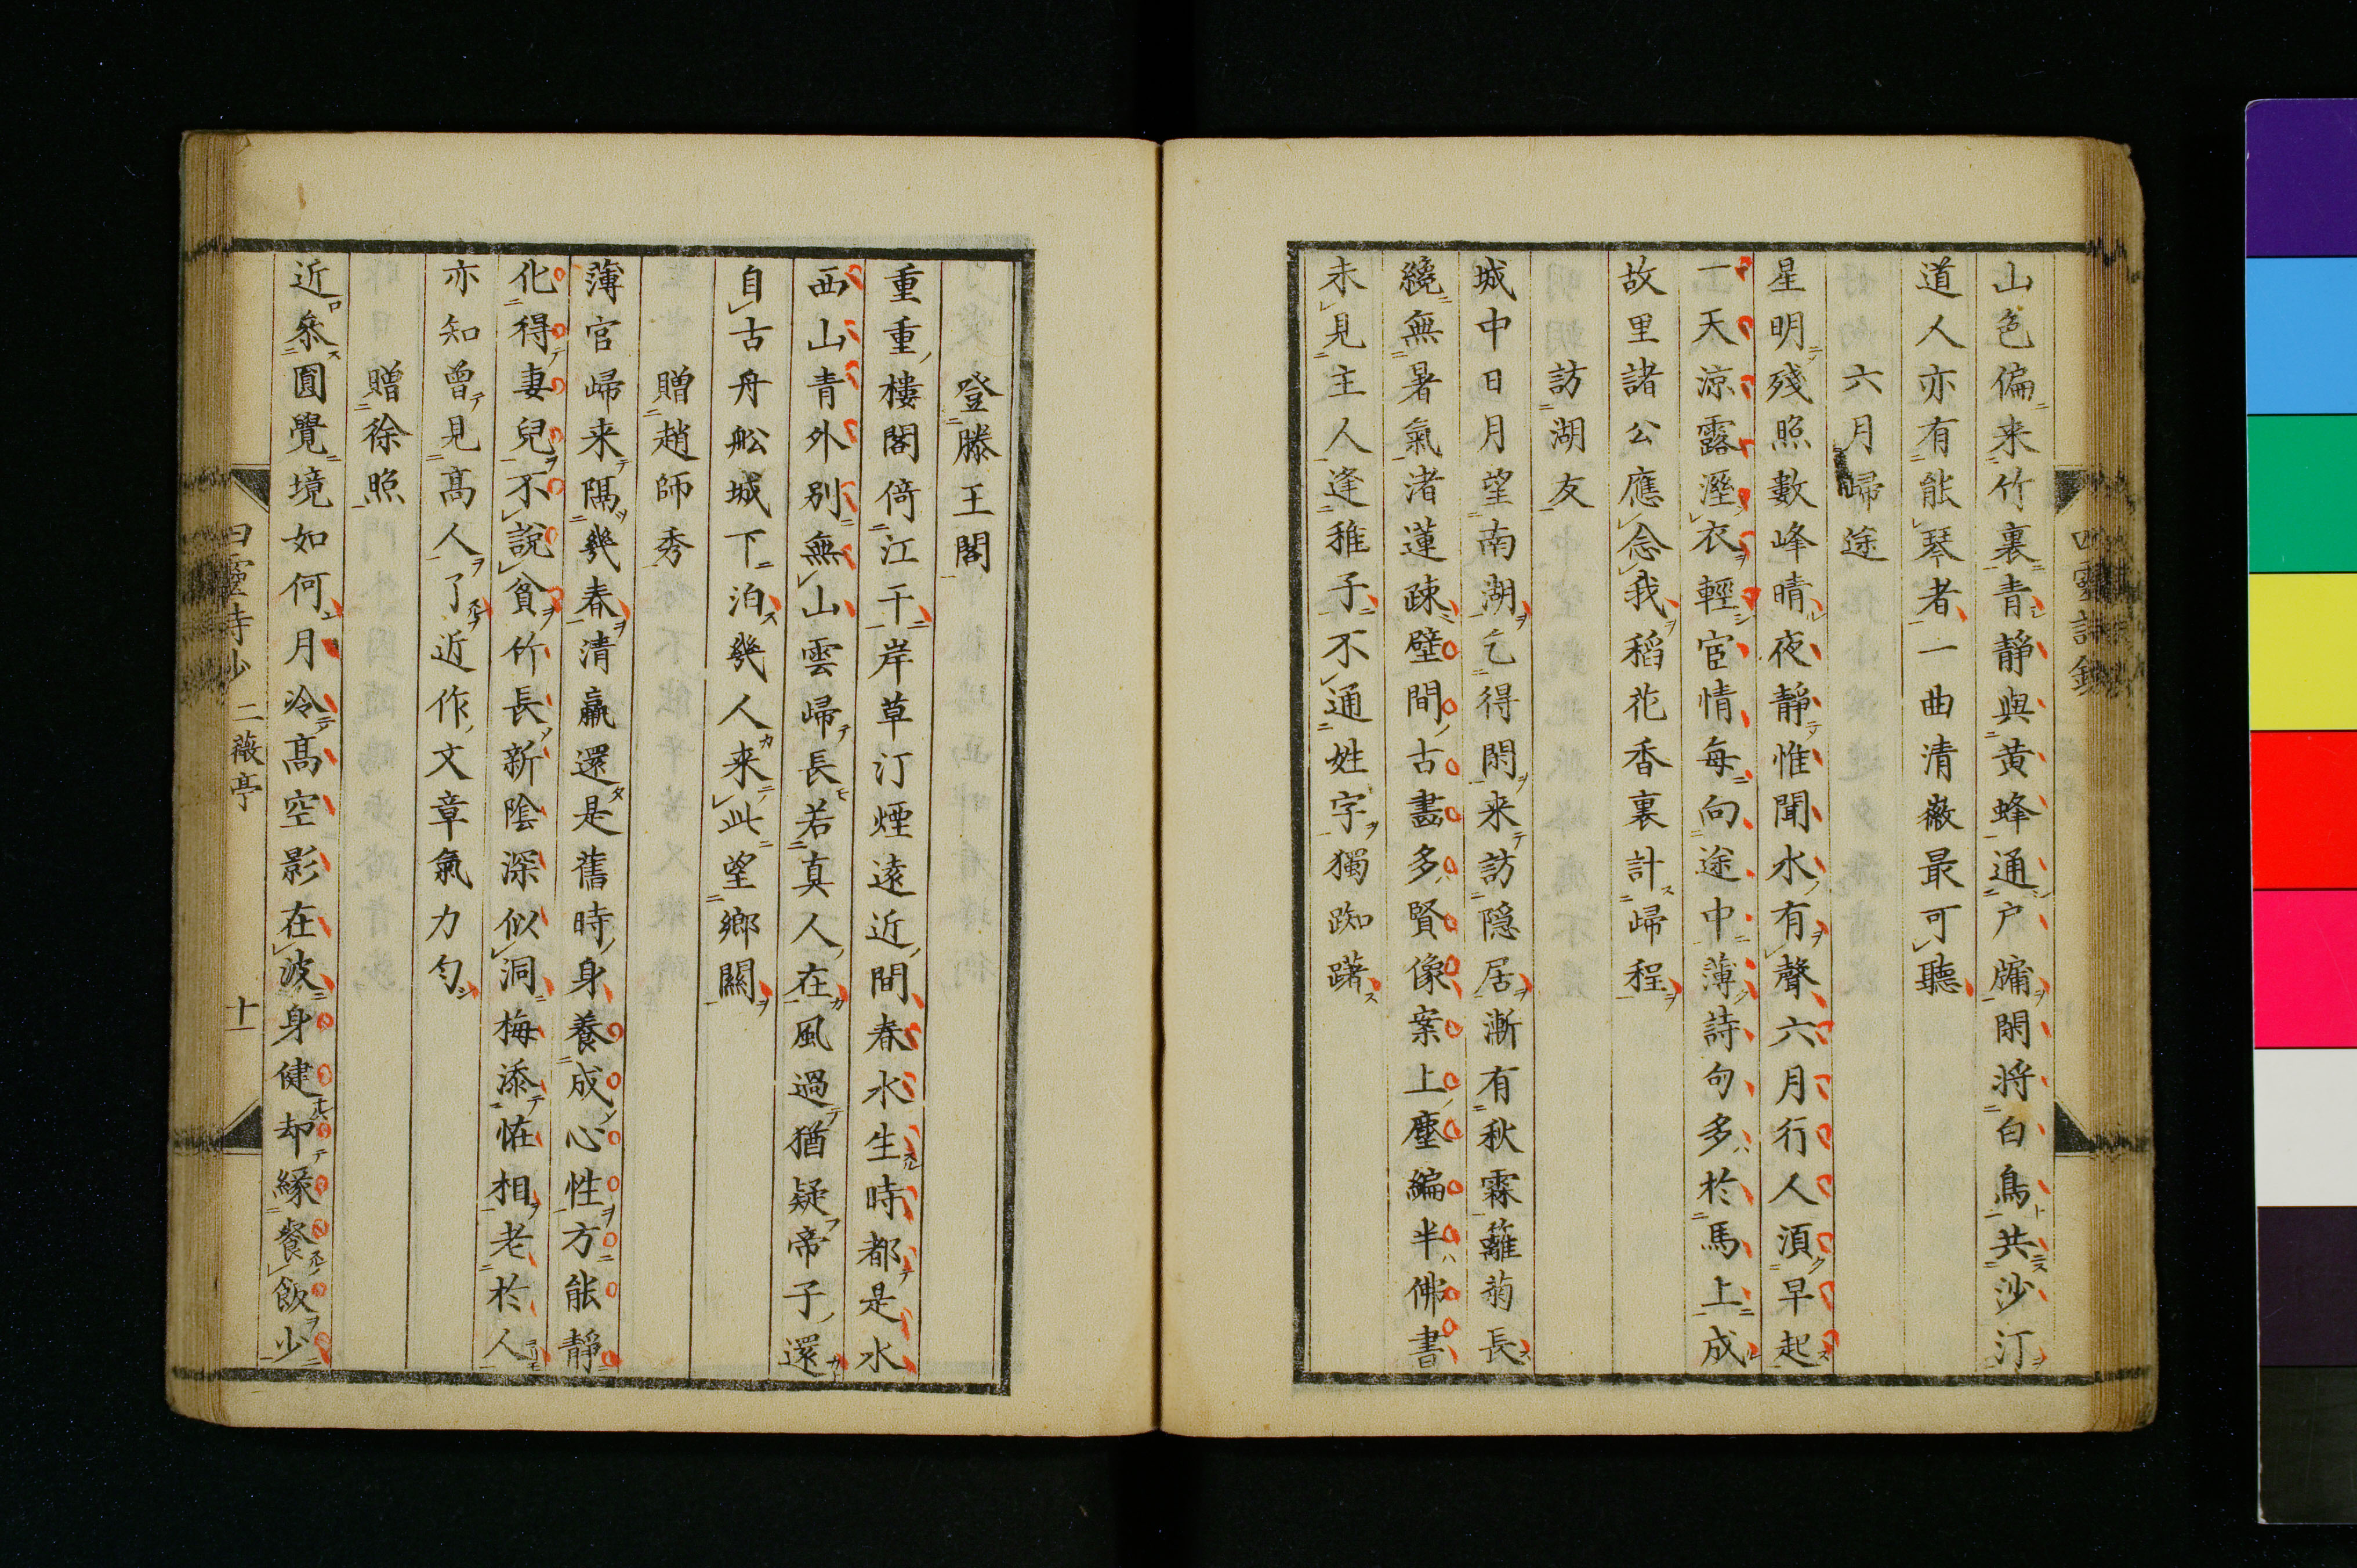 山色偏来竹裏青靜與黄蜂通户牗閑将白鳥共沙汀
道人亦有能琴者一曲清微最可聽
六月歸途
星明殘照數峰晴夜靜惟聞水有聲六月行人湏早起
一天涼露溼衣輕宦情每向途中薄詩句多於馬上成
故里諸公應念我稻花香裏計歸程
訪湖友
城中日月望南湖乞得閑来訪隠居漸有秋霖籬菊長
纔無暑氣渚蓮踈壁間古畫多賢像案上塵編半佛書
未見主人逢稚子不通姓字獨踟躇
四靈詩鈔
登滕王閣
重重樓閣倚江干岸草汀煙遠近間春水生時都是水
西山青外别無山雲歸長若真人在風過猶疑帝子還
自古舟舩城下泊幾人来此望鄉關
贈趙師秀
薄官歸来隔幾春清羸還是舊時身養成心性方能靜
化得妻兒不説貧竹長新陰深似洞梅添恠相老於人
亦知曾見髙人了近作文章氣力匀
贈徐照
近叅圓覺境如何月冷髙空影在波身健却縁餐飲少
四靈詩鈔 二薇亭 十